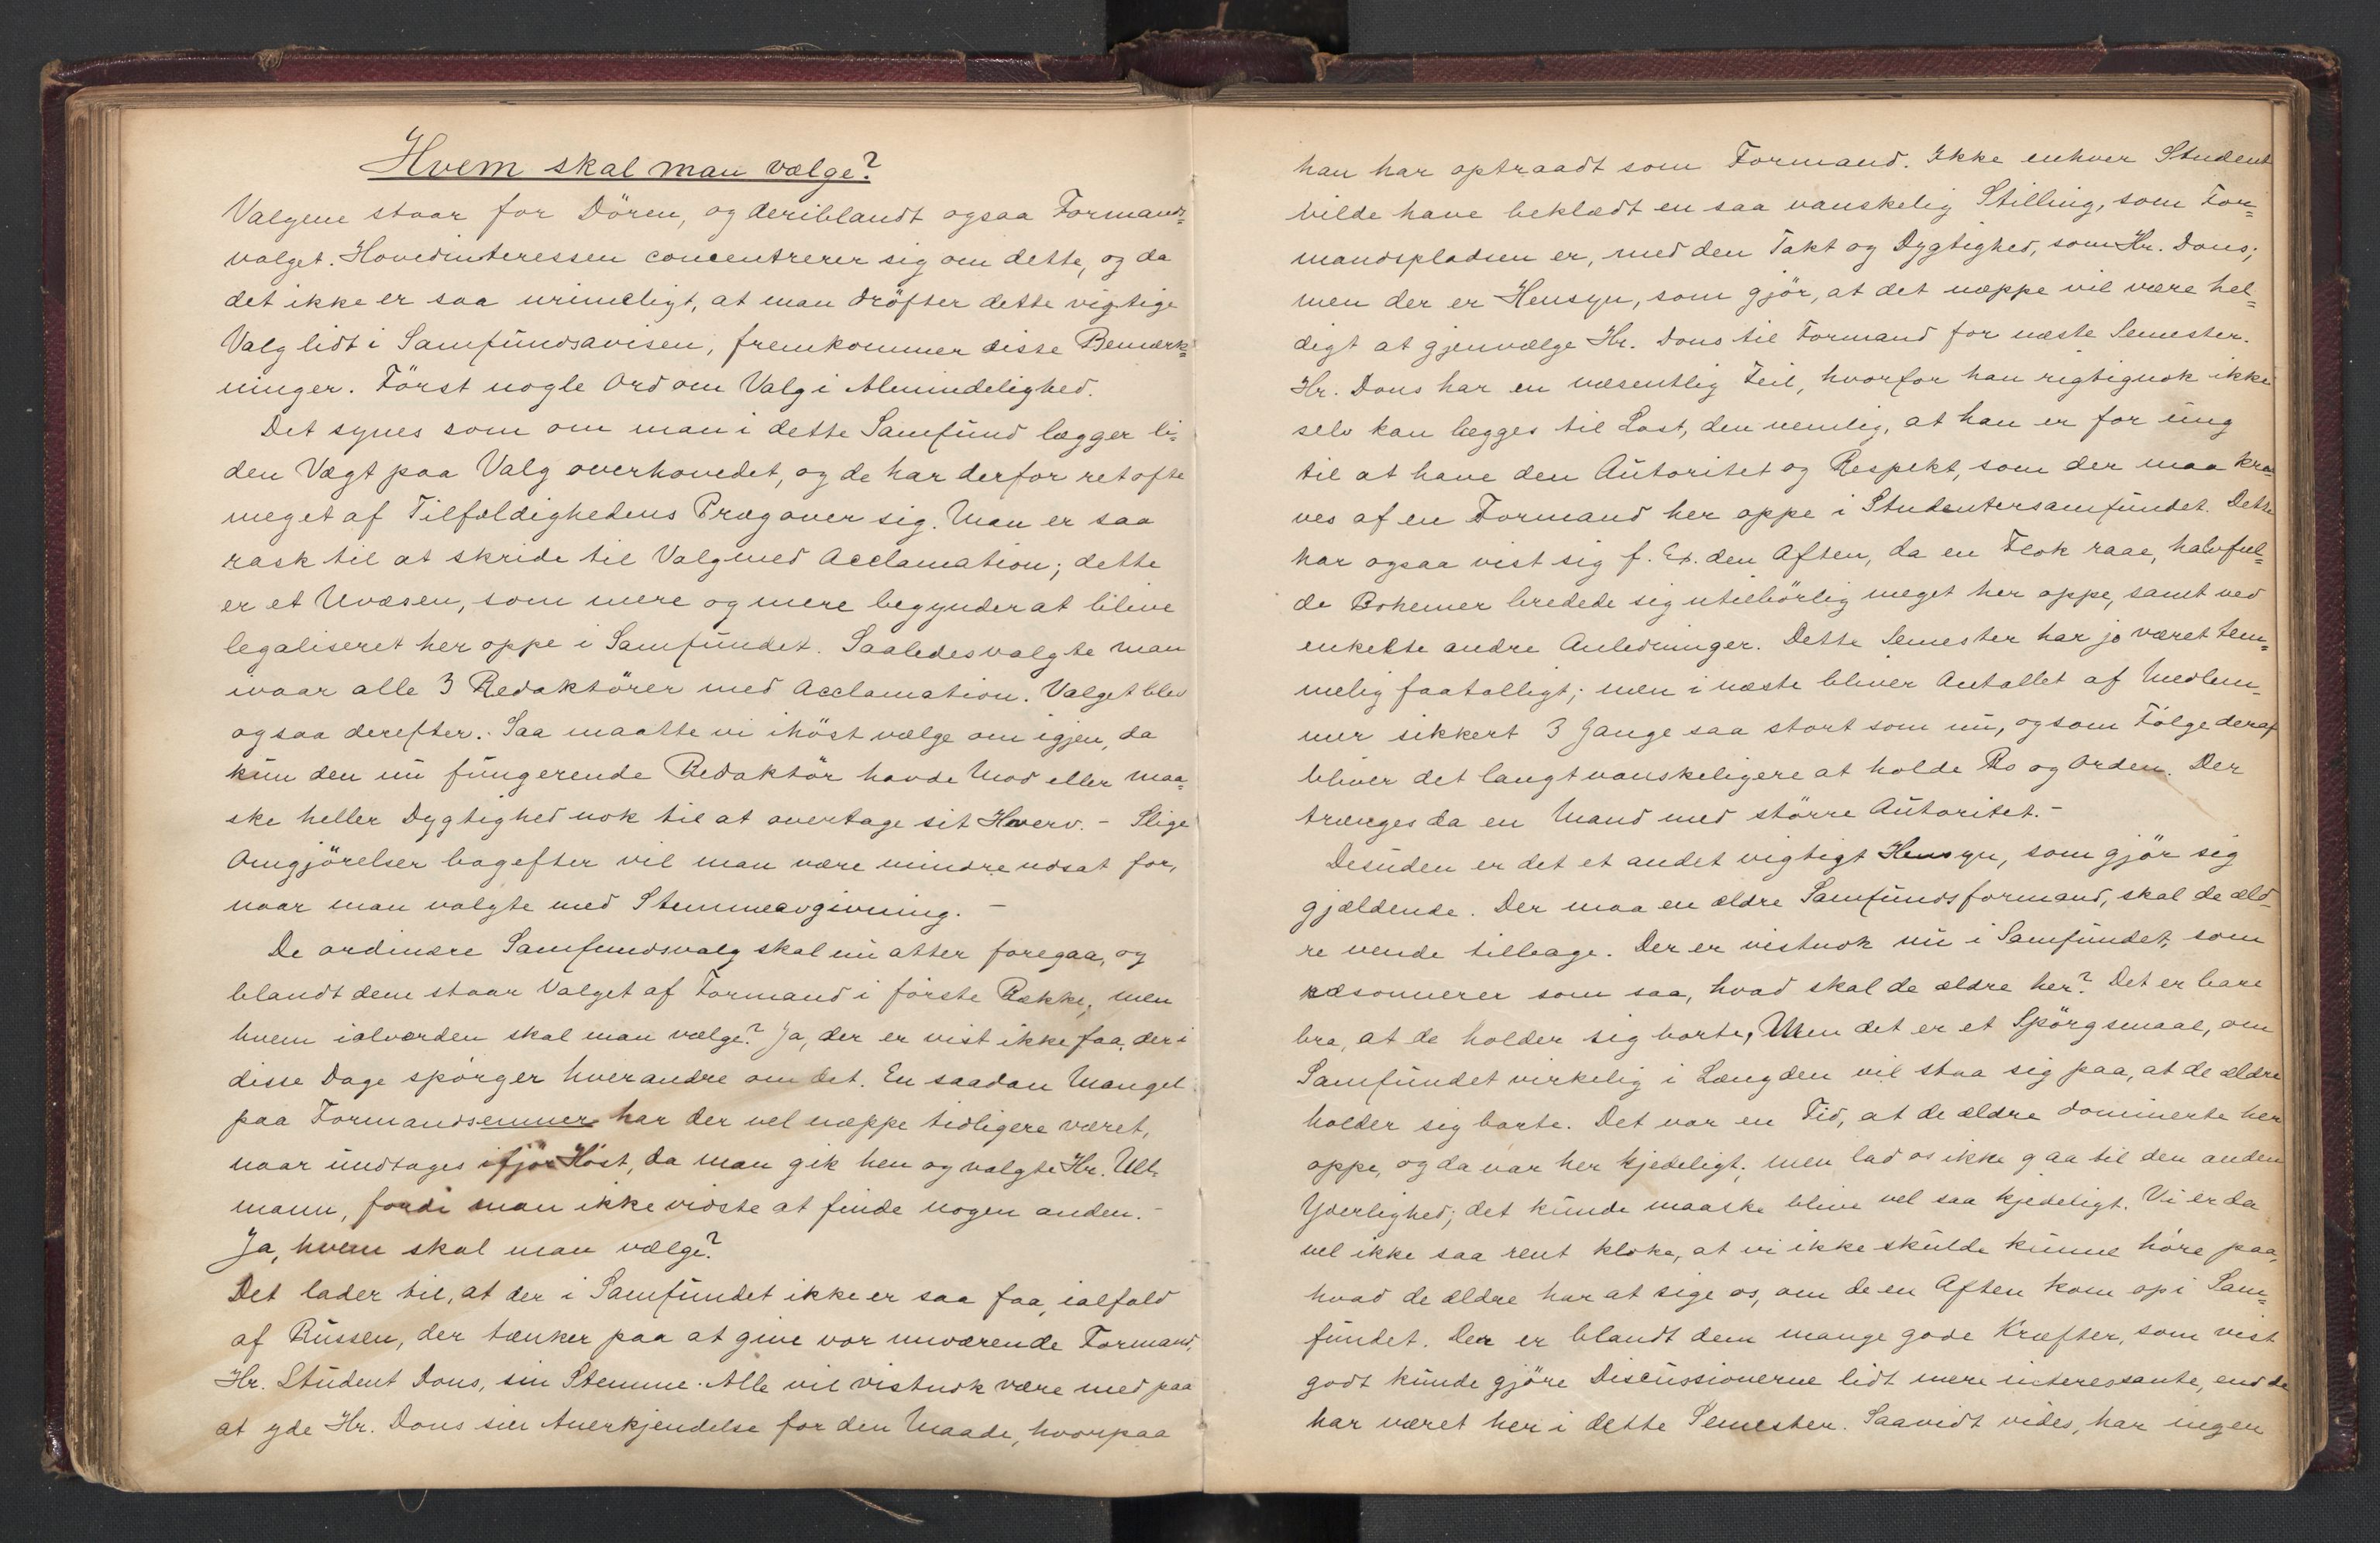 Hvem skal man vælge?
Valgene staar for Dören, og deriblandt ogsaa Formands=
valget. Hovedinteressen concentrerer sig om dette, og da
det ikke er saa urimeligt, at man dröfter dette vigtige
Valg lidt i Samfundsavisen, fremkommer disse Bemærk=
ninger. Först nogle Ord om Valg i Almindelighed.
Det synes som om man i dette Samfund lægger li-
den Vægt paa Valg overhovedet, og de har derfor ret ofte
meget af Tilfældighedens Præg over sig. Man er saa
rask til at skride til Valg med Acclamation; dette
er et Uvæsen, som mere og mere begynder at blive
legaliseret her oppe i Samfundet. Saaledes valgte man
ivaar alle 3 Redaktörer med Acclamation. Valget blev
ogsaa derefter. Saa maatte vi ihöst vælge om igjen, da
kun den nu fungerende Redaktör havde Mod eller maa=
ske heller Dygtighed nok til at overtage sit Hverv. - Slige
Omgjörelser bagefter vil man være mindre udsat for,
naar man valgte med Stemmeavgivning. -
De ordinære Samfundsvalg skal nu atter foregaa, og
blandt dem staar Valget af Formand i förste Række, men
hvem ialverden skal man vælge? Ja, der er vist ikke faa, der i
disse Dage spörger hverandre om det. En saadan Mangel
paa Formandsemner har der vel neppe tidligere været,
naar undtages ifjor Höst, da man gik hen og valgte Hr. Ull-
mann, fordi man ikke vidste at finde nogen anden. -
Ja, hvem skal man vælge?
Det lader til, at der i Samfundet ikke er saa faa, ialfald
af Russen, der tænker paa at give vor nuværende Formand,
Hr. Student Dons, sin Stemme. Alle vil vistnok være med paa
at yde Hr. Dons sin Anerkjendelse for den Maade, hvorpaa
han har optraadt som Formand. Ikke enhver Student
vilde have beklædt en saa vanskelig Stilling, som For=
mandspladsen er, med den Takt og Dygtighed, som Hr. Dons;
men der er Hensyn, som gjör, at det næppe vil være hel=
digt at gjenvælge Hr. Dons til Formand for næste Semester.
Hr. Dons har en væsentlig Feil, hvorfor han rigtignok ikke
selv kan lægges til Last, den nemlig, at han er for ung
til at have den Autoritet og Respekt, som der maa kræ
ves af en Formand her oppe i Studentersamfundet. Dette
har ogsaa vist sig f. Ex. den Aften, da en Flok raae, halvful=
de Bohemer bredede sig utilbörlig meget her oppe, samt ved
enkelte andre Anledninger. Dette Semester har jo været tem=
melig faatalligt; men i næste bliver Antallet af Medlem=
mer sikkert 3 Gange saa stort som nu, og som Fölge deraf
bliver det langt vanskeligere at holde Ro og Orden. Der
trænges da en Mand med större Autoritet. -
Desuden er det et andet vigtigt Hensyn, som gjör sig
gjældende. Der maa en ældre Samfundsformand, skal de æld-
re vende tilbage. Der er vistnok nu i Samfundet, som
ræsonnerer som saa, hvad skal de ældre her? Det er bare
bra, at de holder sig borte, Men det er et Spörgsmaal, om
Samfundet virkelig i Længden vil staa sig paa, at de ældre
holder sig borte. Det var en Tid, at de ældre dominerte her
oppe, og da var her kjedeligt; men lad os ikke gaa til den anden
Yderlighed; det kunde maaske blive vel saa kjedeligt. Vi er da
vel ikke saa rent kloke, at vi ikke skulde kunne höre paa,
hvad de ældre har at sige os, om de en Aften kom op i Sam=
fundet. Der er blandt dem mange gode Kræfter, som vist
godt kunde gjöre Discussionerne lidt mere interessante, end de
har været her i dette Semester. Saavidt vides, har ingen